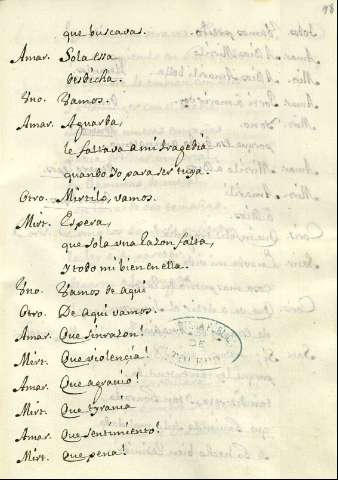 98
que buscavas.
Amar. Sola essa
desdicha.
Vno. Vamos.
Amar. Aguarda,
le faltava a mi tragedia
quando yo para ser tuya.
Otro. Mirtilo, vamos.
Mirt. Espera,
que sola vna razon falta,
y todo mi bien en ella.
Vno Vamos de aqui
Otro. De aqui vamos.
Amar. Que sinrazon!
Mirt. Que violençia!
Amar. Que agravio!
Mirt. Que tyrania
Amar. Que sentimiento!
Mirt. Que pena!
DE
TOLEDO